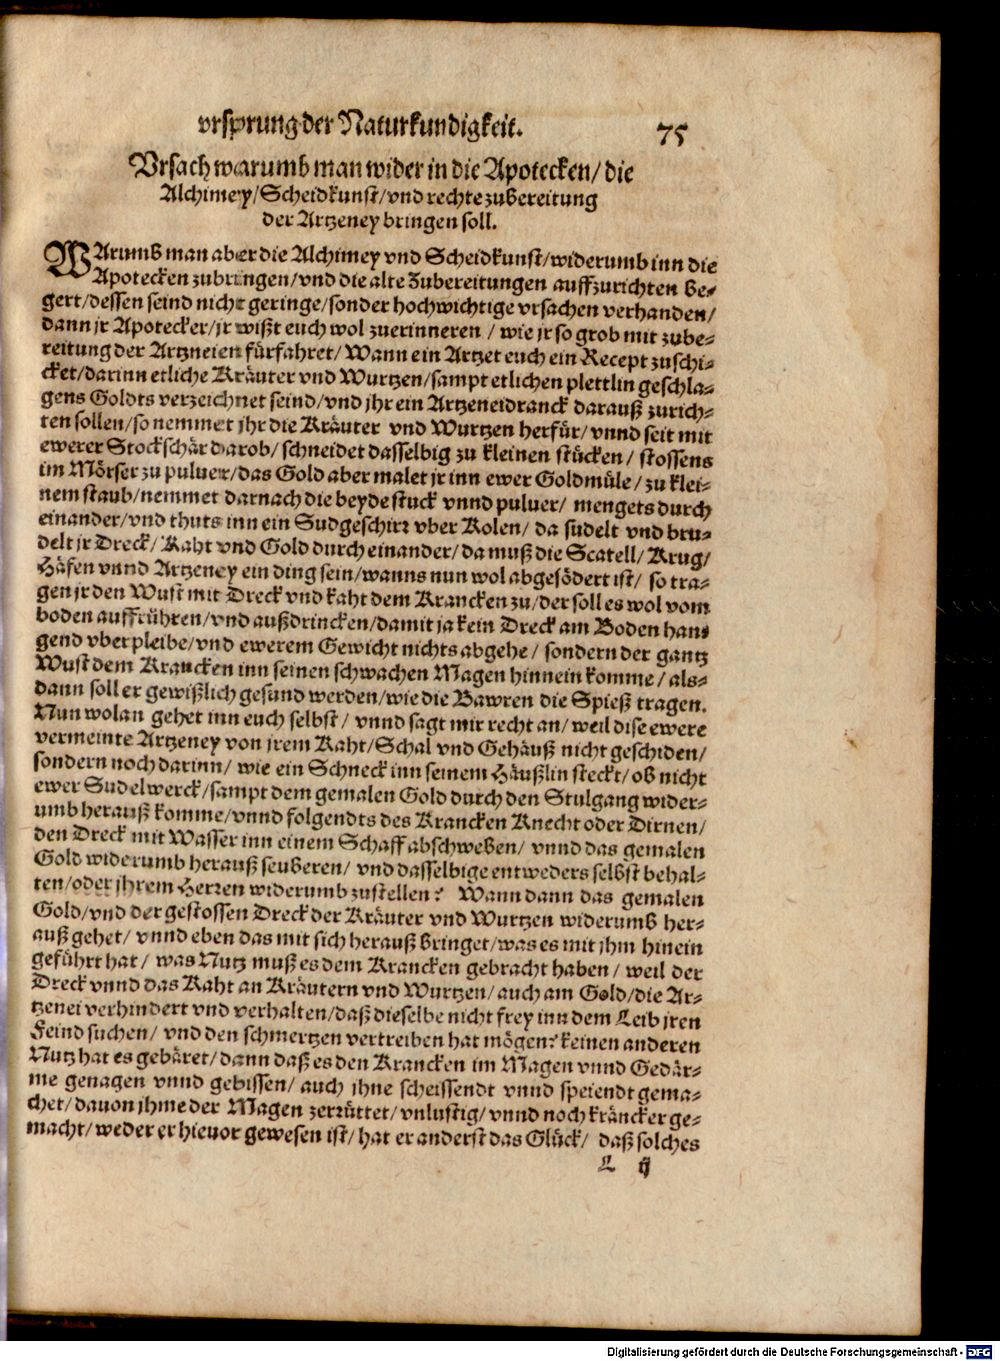 vrsprung der Naturkundigkeit.
75
Vrsach warumb man wider in die Apotecken/ die
Alchimey/ Scheidkunst/ vnd rechte zubereitung
der Artzeney bringen soll.
WArumb man aber die Alchimey vnd Scheidkunst/ widerumb inn die
Apotecken zubringen/ vnd die alte Zubereitungen auffzurichten be-
gert/ dessen seind nicht geringe/ sonder hochwichtige vrsachen verhanden/
dann jr Apotecker/ jr wißt euch wol zuerinneren / wie jr so grob mit zube-
reitung der Artzneien fürfahret/ Wann ein Artzet euch ein Recept zuschi-
cket/ darinn etliche Kräuter vnd Wurtzen/ sampt etlichen plettlin geschla-
gens Goldts verzeichnet seind/ vnd jhr ein Artzeneidranck darauß zurich-
ten sollen/ so nemmet jhr die Kräuter vnd Wurtzen herfür/ vnnd seit mit
ewerer Stockschär darob/ schneidet dasselbig zu kleinen stücken/ stossens
im Mörser zu puluer/ das Gold aber malet jr inn ewer Goldmüle/ zu klei-
nem staub/ nemmet darnach die beyde stuck vnnd puluer/ mengets durch
einander/ vnd thuts inn ein Sudgeschirr vber Kolen/ da sudelt vnd bru-
delt jr Dreck/ Kaht vnd Gold durch einander/ da muß die Scatell/ Krug/
Häfen vnnd Artzeney ein ding sein/ wanns nun wol abgesödert ist/ so tra-
gen jr den Wust mit Dreck vnd kaht dem Krancken zu/ der soll es wol vom
boden auffrühren/ vnd außdrincken/ damit ja kein Dreck am Boden han-
gend vberpleibe/ vnd ewerem Gewicht nichts abgehe/ sondern der gantz
Wust dem Krancken inn seinen schwachen Magen hinnein komme/ als-
dann soll er gewißlich gesund werden/ wie die Bawren die Spieß tragen.
Nun wolan gehet inn euch selbst/ vnnd sagt mir recht an/ weil dise ewere
vermeinte Artzeney von jrem Kaht/ Schal vnd Gehäuß nicht geschiden/
sondern noch darinn/ wie ein Schneck inn seinem Häußlin steckt/ ob nicht
ewer Sudelwerck/ sampt dem gemalen Gold durch den Stulgang wider-
umb herauß komme/ vnnd folgendts des Krancken Knecht oder Dirnen/
den Dreck mit Wasser inn einem Schaff abschweben/ vnnd das gemalen
Gold widerumb herauß seuberen/ vnd dasselbige entweders selbst behal-
ten/ oder jhrem Herren widerumb zustellen? Wann dann das gemalen
Gold/ vnd der gestossen Dreck der Kräuter vnd Wurtzen widerumb her-
auß gehet/ vnnd eben das mit sich herauß bringet/ was es mit jhm hinein
geführt hat/ was Nutz muß es dem Krancken gebracht haben/ weil der
Dreck vnnd das Kaht an Kräutern vnd Wurtzen/ auch am Gold/ die Ar-
tzenei verhindert vnd verhalten/ daß dieselbe nicht frey inn dem Leib jren
Feind suchen/ vnd den schmertzen vertreiben hat mögen? keinen anderen
Nutz hat es gebäret/ dann daß es den Krancken im Magen vnnd Gedär-
me genagen vnnd gebissen/ auch jhne scheissendt vnnd speiendt gema-
chet/ dauon jhme der Magen zerrüttet/ vnlustig/ vnnd noch kräncker ge-
macht/ weder er hieuor gewesen ist/ hat er anderst das Glück/ daß solches
L ij
Digitalisierung gefördert durch die Deutsche Forschungsgemeinschaft - DFG